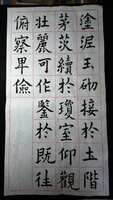 塗泥玉砌接於土階
茅茨續於瓊室仰觀
壯麗可作鑒於既往
俯察卑儉